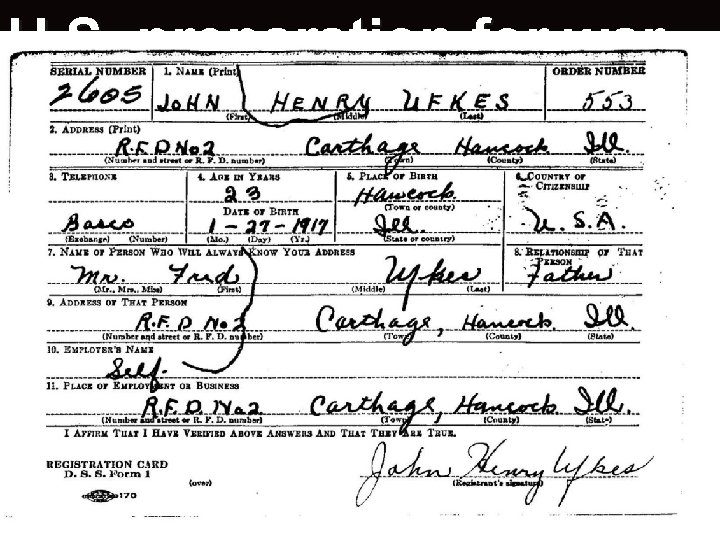 U.S. preparation for war
SERIAL NUMBER 1. NAME (Print) ORDER NUMBER
2605 JOHN HENRY UFKES 553
(First) (Middle) (Last)
2. ADDRESS (Print)
R.F.D No 2 Carthage Hancock Ill.
(Number and street or R. F. D. number) (Town) (County) (State)
3. TELEPHONE 4. AGE IN YEARS 5. PLACE OF BIRTH 6. COUNTRY OF CITIZENSHIP
23 Hancock
DATE OF BIRTH (Town or county)
Basco 1-27-1917 Ill. U.S.A.
(Exchange) (Number) (Mo.) (Day) (Yr.) (State or country)
7. NAME OF PERSON WHO WILL ALWAYS KNOW YOUR ADDRESS 8. RELATIONSHIP OF THAT PERSON
Mr. Fred Ufkes Father
(Mr., Mrs., Miss) (First) (Middle) (Last)
9. ADDRESS OF THAT PERSON
R.F.D No 2 Carthage, Hancock Ill.
(Number and street or R. F. D. number) (Town) (County) (State)
10. EMPLOYER'S NAME
Self.
11. PLACE OF EMPLOYMENT OR BUSINESS
R.F.D. No 2 Carthage, Hancock Ill.
(Number and street or R. F. D. number) (Town) (County) (State)
I AFFIRM THAT I HAVE VERIFIED ABOVE ANSWERS AND THAT THEY ARE TRUE.
REGISTRATION CARD
D. S. S. Form 1
John Henry Ufkes
(over) (Registrant's signature)
170